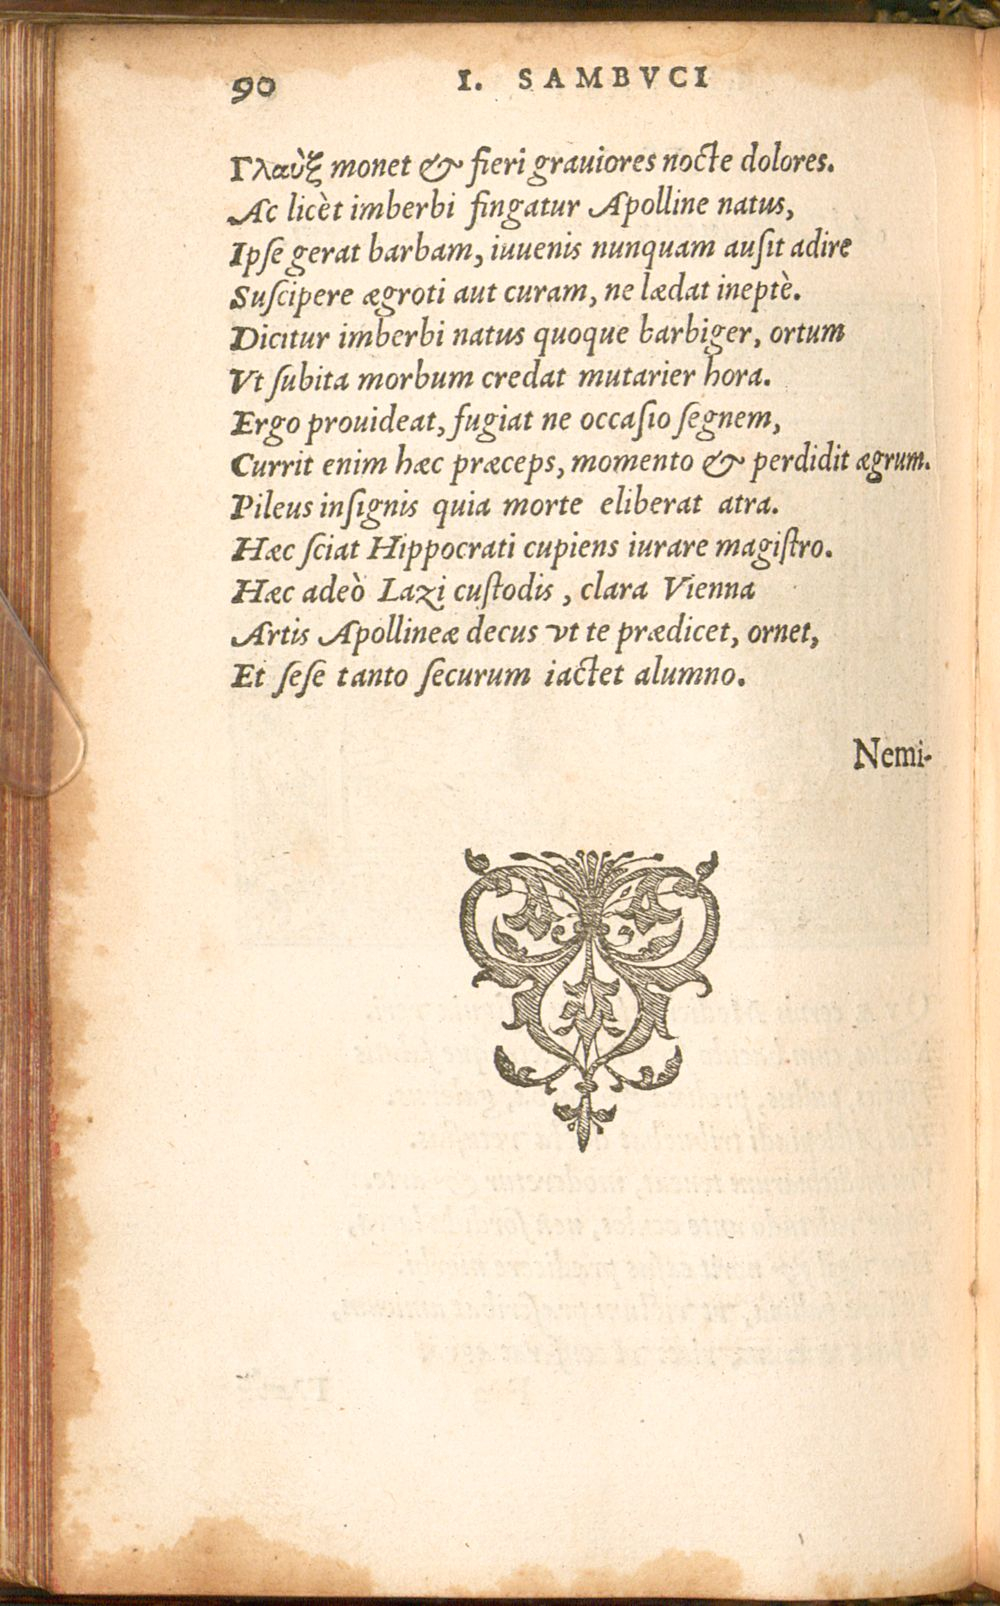 90 I. SAMBVCI
Γλαὺξ monet & fieri grauiores nocte dolores.
Ac licèt imberbi fingatur Apolline natus,
Ipſe gerat barbam, iuuenis nunquam auſit adire
Suſcipere ægroti aut curam, ne lædat ineptè.
Dicitur imberbi natus quoque barbiger, ortum
Vt ſubita morbum credat mutarier hora.
Ergo prouideat, fugiat ne occaſio ſegnem,
Currit enim hæc præceps, momento & perdidit ægrum.
Pileus inſignis quia morte eliberat atra.
Hæc ſciat Hippocrati cupiens iurare magiſtro.
Hæc adeò Lazi cuſtodis, clara Vienna
Artis Apollineæ decus vt te prædicet, ornet,
Et ſeſe tanto ſecurum iactet alumno.
Nemi-